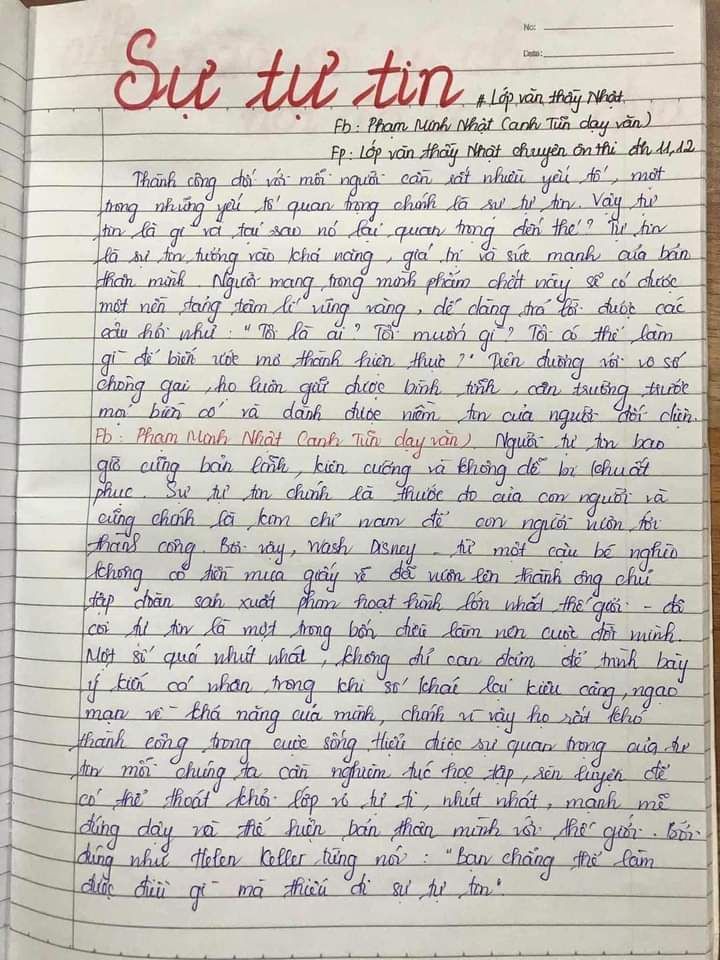 No:
Date:
Sự tự tin
# Lớp văn thầy Nhật.
Fb: Phạm Minh Nhật (anh Tũn dạy văn)
Fp: Lớp văn thầy Nhật chuyên ôn thi đh 11,12
Thành công đối với mỗi người cần rất nhiều yếu tố, một
trong những yếu tố quan trọng chính là sự tự tin. Vậy tự
tin là gì và tại sao nó lại quan trọng đến thế? Tự tin
là sự tin tưởng vào khả năng, giá trị và sức mạnh của bản
thân mình. Người mang trong mình phẩm chất này sẽ có được
một nền tảng tâm lí vững vàng, dễ dàng trả lời được các
câu hỏi như: "Tôi là ai? Tôi muốn gì? Tôi có thể làm
gì để biến ước mơ thành hiện thực?" Trên đường với vô số
chông gai, họ luôn giữ được bình tĩnh, can trường trước
mọi biến cố và dành được niềm tin của người đối diện.
Fb: Phạm Minh Nhật (anh Tũn dạy văn) Người tự tin bao
giờ cũng bản lĩnh, kiên cường và không dễ bị khuất
phục. Sự tự tin chính là thước đo của con người và
cũng chính là kim chỉ nam để con người vươn tới
thành công. Bởi vậy, Wash Disney - từ một cậu bé nghèo
không có tiền mua giấy vẽ để vươn lên thành ông chủ
tập đoàn sản xuất phim hoạt hình lớn nhất thế giới - đã
coi tự tin là một trong bốn điều làm nên cuộc đời mình.
Một số quá nhút nhát, không chỉ can đảm để trình bày
ý kiến cá nhân trong khi số khác lại kiêu căng, ngạo
mạn về khả năng của mình, chính vì vậy họ rất khó
thành công trong cuộc sống. Hiểu được sự quan trọng của tự
tin mỗi chúng ta cần nghiêm túc học tập, rèn luyện để
có thể thoát khỏi lớp vỏ tự ti, nhút nhát, mạnh mẽ
đứng dậy và thể hiện bản thân mình với thế giới. Bởi
đúng như Helen Keller từng nói: "Bạn chẳng thể làm
được điều gì mà thiếu đi sự tự tin".